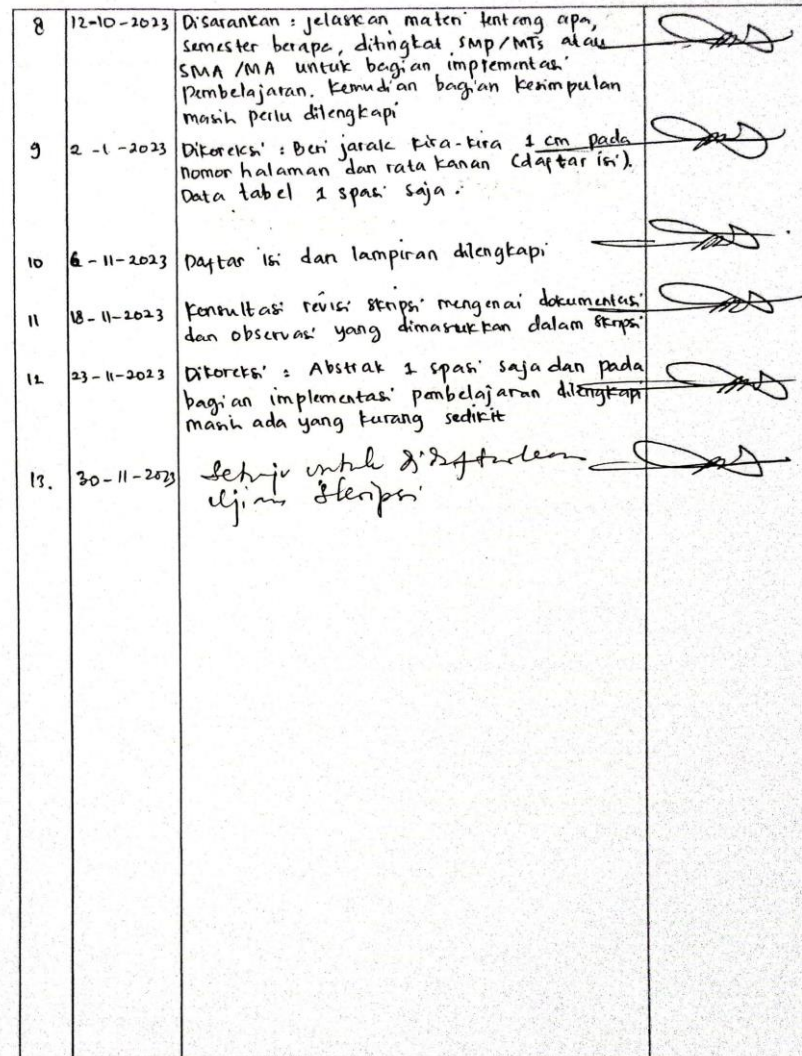 8 12-10-2023 Disarankan : jelaskan materi tentang apa,
semester berapa, ditingkat SMP/MTs atau
SMA/MA untuk bagian implementasi
Pembelajaran. Kemudian bagian kesimpulan
masih perlu dilengkapi
9 2-1-2023 Dikoreksi : Beri jarak kira-kira 1 cm pada
nomor halaman dan rata kanan (daftar isi).
Data tabel 1 spasi saja.
10 6-11-2023 Daftar isi dan lampiran dilengkapi
11 18-11-2023 Konsultasi revisi skripsi mengenai dokumentasi
dan observasi yang dimasukkan dalam skripsi
12 23-11-2023 Dikoreksi : Abstrak 1 spasi saja dan pada
bagian implementasi pembelajaran dilengkapi
masih ada yang kurang sedikit
13. 30-11-2023 Setuju untuk didaftarkan
ujian skripsi